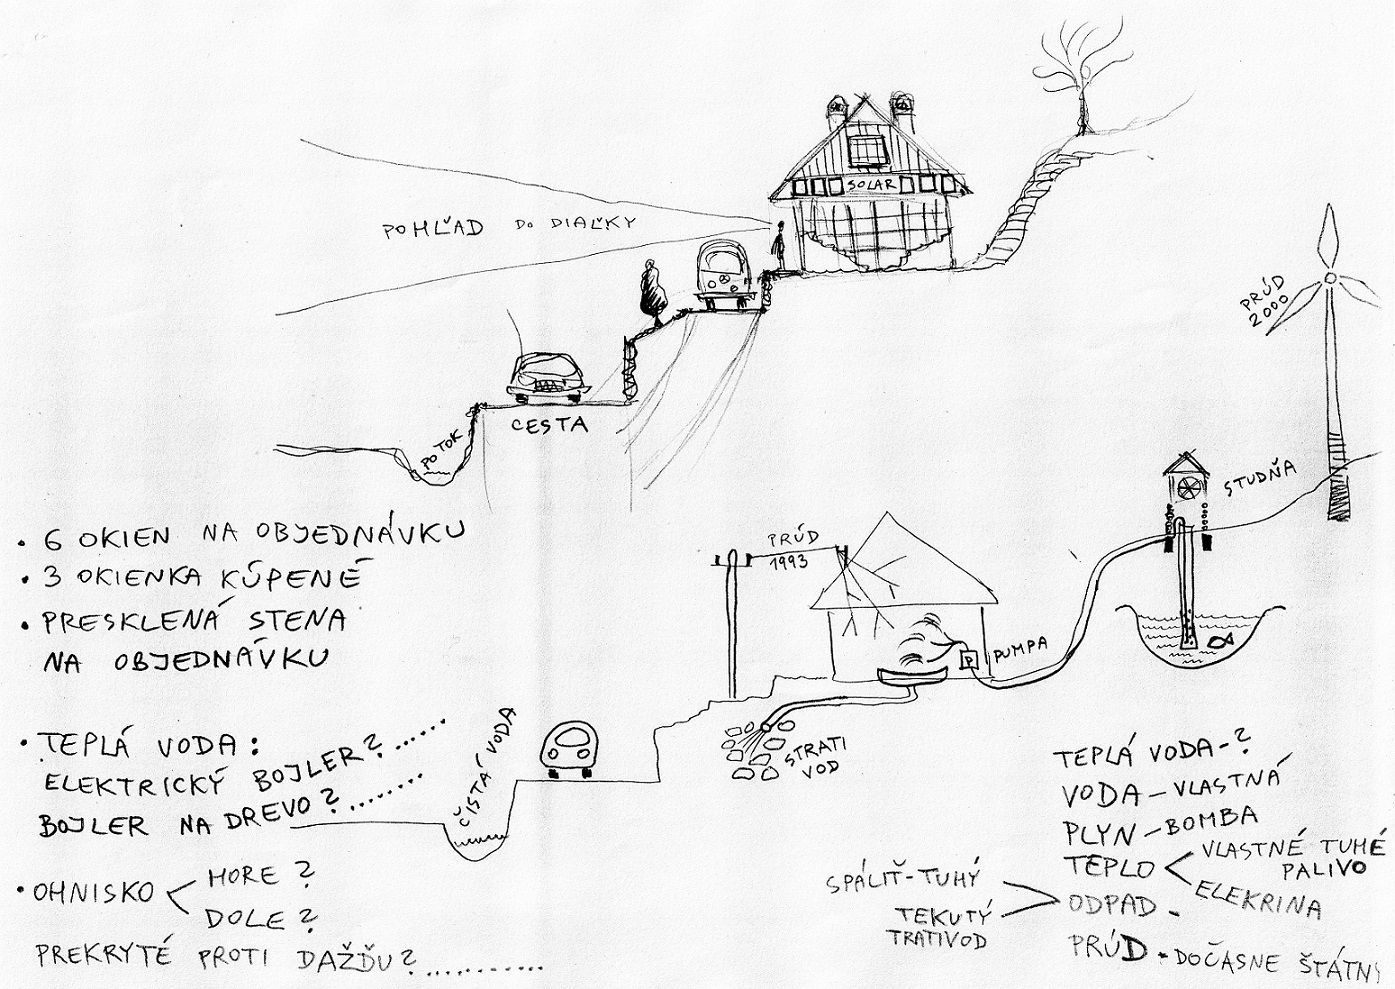 SOLAR
POHĽAD DO DIAĽKY
PRÚD
2000
CESTA
POTOK
STUDŇA
• 6 OKIEN NA OBJEDNÁVKU
• 3 OKIENKA KÚPENÉ
• PRESKLENÁ STENA
NA OBJEDNÁVKU
PRÚD
1993
P
PUMPA
• TEPLÁ VODA:
ELEKTRICKÝ BOJLER?......
BOJLER NA DREVO?.......
ČISTÁ VODA
STRATI
VOD
• OHNISKO
HORE?
DOLE?
PREKRYTÉ PROTI DAŽĎU?..........
TEPLÁ VODA-?
VODA-VLASTNÁ
PLYN-BOMBA
TEPLO
VLASTNÉ TUHÉ
PALIVO
ELEKRINA
SPÁLIŤ-TUHÝ
TEKUTÝ
TRATIVOD
ODPAD-
PRÚD-DOČASNE ŠTÁTNY